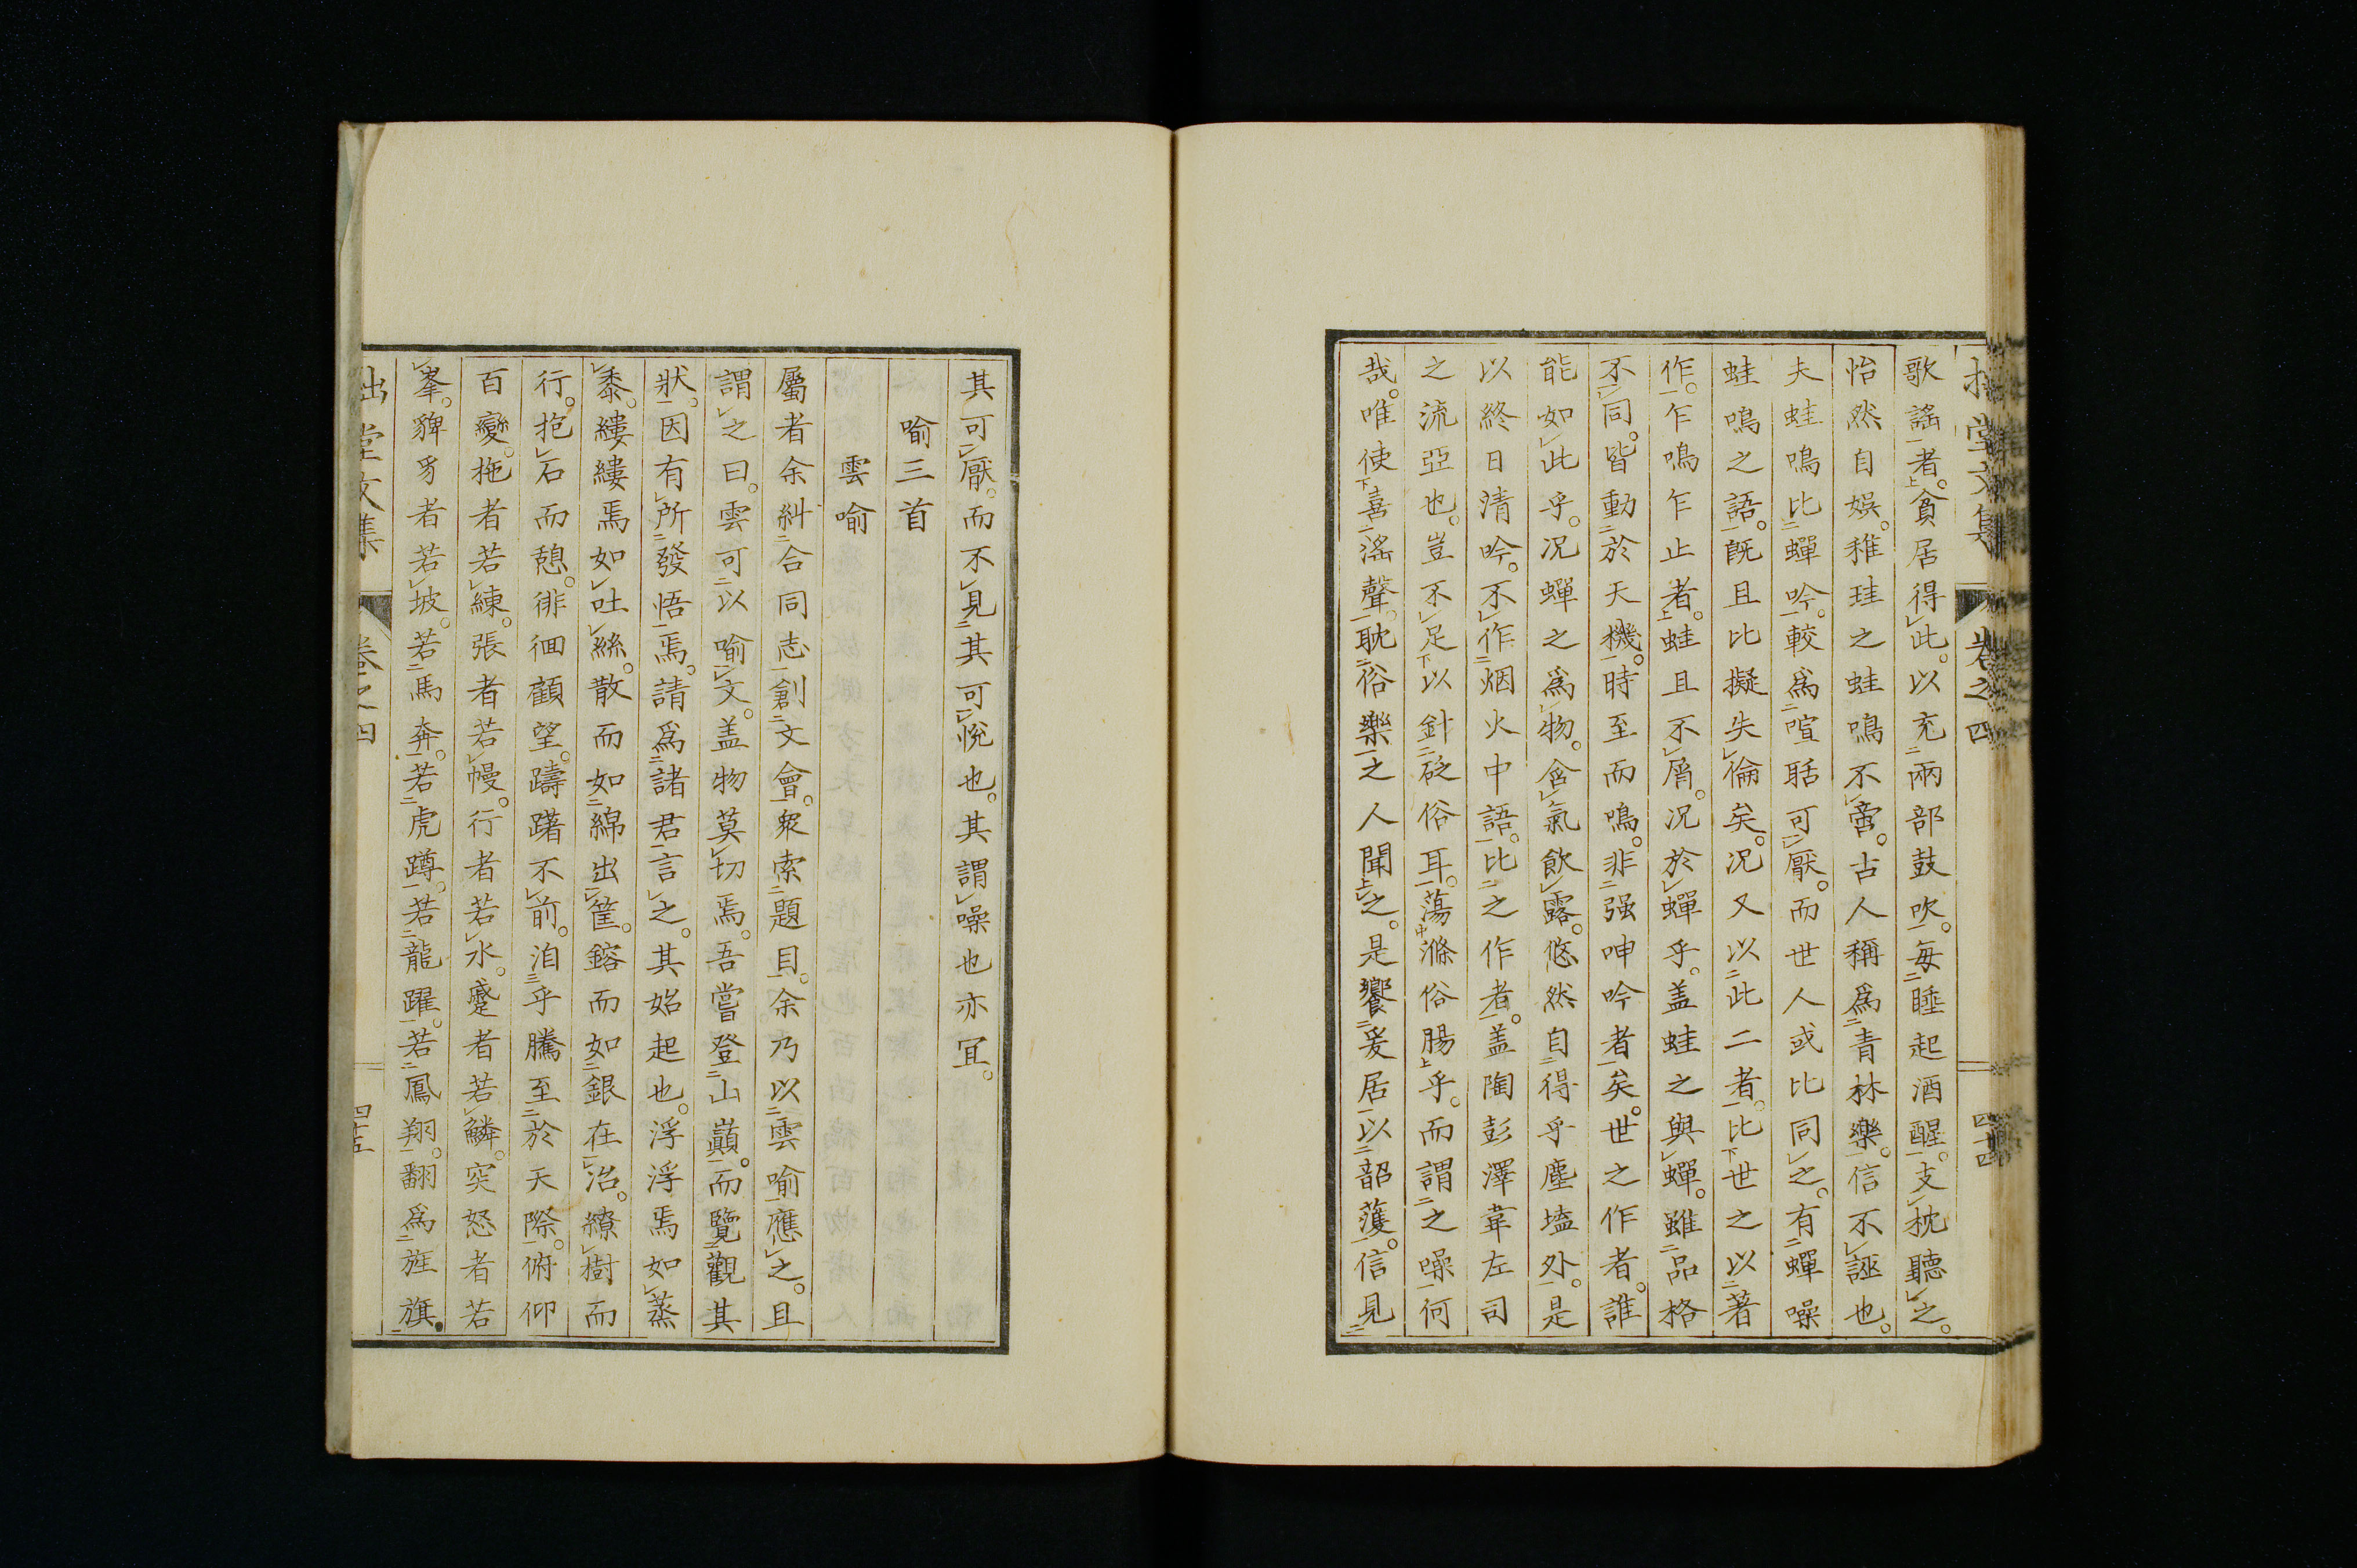 歌謠者。貪居得此。以充兩部鼓吹。每睡起酒醒。支枕聽之。
怡然自娯。稚珪之蛙鳴不啻。古人稱爲青林樂。信不誣也。
夫蛙鳴比蟬吟。較爲喧聒可厭。而世人或比同之。有蟬噪
蛙鳴之語。既且比擬失倫矣。况又以此二者。比世之以著
作。乍鳴乍止者。蛙且不屑。况於蟬乎。盖蛙之與蟬。雖品格
不同。皆動於天機。時至而鳴。非强呻吟者矣。世之作者。誰
能如此乎。况蟬之爲物。含氣飲露。悠然自得乎塵壒外。是
以終日清吟。不作烟火中語。比之作者。盖陶彭澤韋左司
之流亞也。豈不足以針砭俗耳。蕩滌俗腸乎。而謂之噪何
哉。唯使喜滛聲耽俗樂之人聞之。是饗爰居以韶濩。信見
其可厭。而不見其可悅也。其謂噪也亦宜。
喻三首
雲喻
屬者余糾合同志創文會。衆索題目。余乃以雲喻應之。且
謂之曰。雲可以喻文。盖物莫切焉。吾嘗登山巔。而覽觀其
狀。因有所發悟焉。請爲諸君言之。其始起也。浮浮焉如蒸
黍。縷縷焉如吐絲。散而如綿出筐。鎔而如銀在冶。繚樹而
行。抱石而憩。徘徊顧望。躊躇不前。洎乎騰至於天際。俯仰
百變。拖者若練。張者若幔。行者若水。蹙者若鱗。突怒者若
峯。貏豸者若坡。若馬奔。若虎蹲。若龍躍。若鳳翔。翻爲旌旗。
堂文集 卷之四 四十五
堂文集 卷之四 四十四